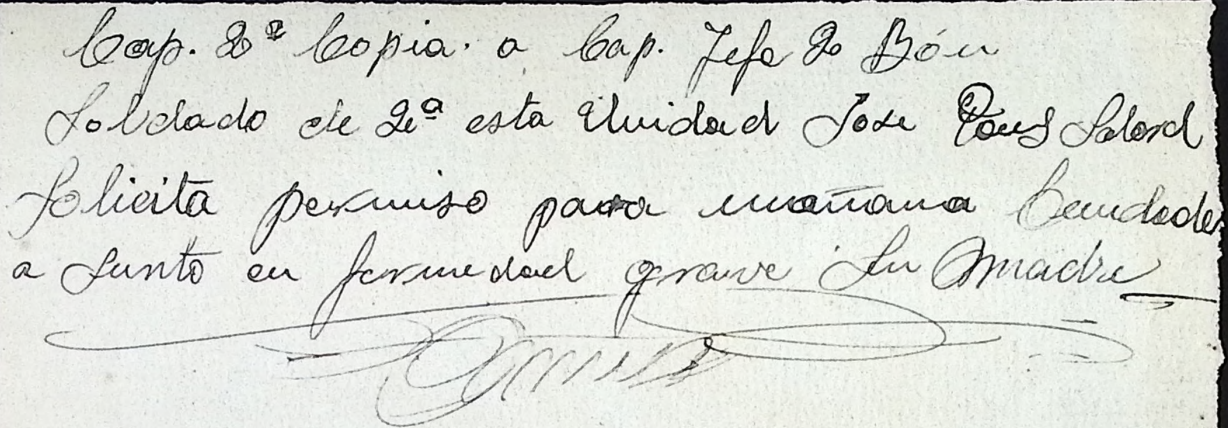 Cap. 2ª Copia. a Cap. Jefe 2º Bón
Soldado de 2ª esta Unidad Jose Pons Salord
Solicita permiso para mañana Ciudadela
a sunto en fermedad grave Su Madre